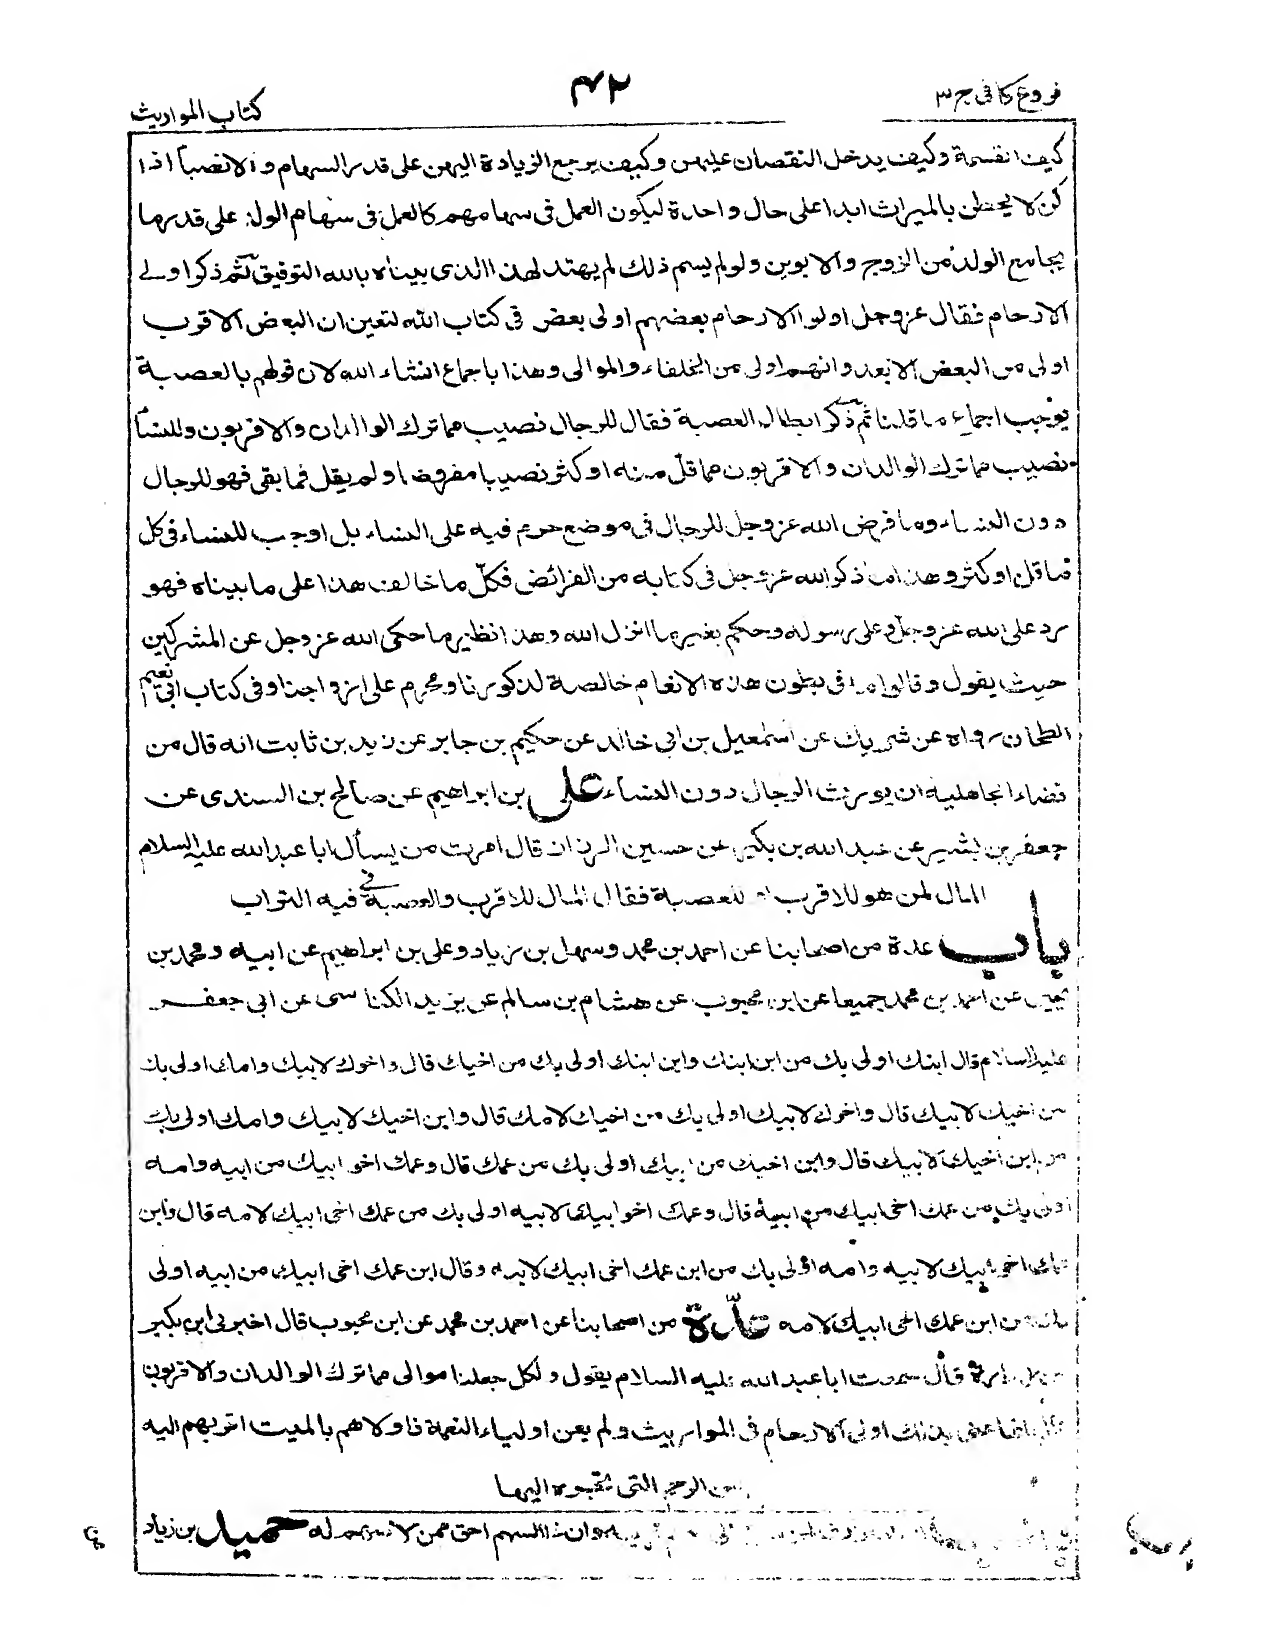 فروع كافى ج ٣
٤٢
كتاب المواريث
كيف القسمة وكيف يدخل النقصان عليهن وكيف يرجع الزيادة اليهن على قدر السهام والانصبا اذا
كن لا يحطن بالميراث ابدا على حال واحدة ليكون العمل فى سهامهم كالعمل فى سهام الولد على قدر ما
يجامع الولد من الزوج والابوين ولو لم يسم ذلك لم يهتد لهذا الذى بيناه بالله التوفيق ثم ذكر اولى
الارحام فقال عز وجل اولوا الارحام بعضهم اولى ببعض فى كتاب الله لتعين ان البعض الاقرب
اولى من البعض الابعد وانهم اولى من الخلفاء والموالى وهذا باجماع انشاء الله لان قولهم بالعصبة
يوجب اجماع ما قلنا ثم ذكر ابطال العصبة فقال للرجال نصيب مما ترك الوالدان والاقربون وللنساء
نصيب مما ترك الوالدان والاقربون مما قل منه او كثر نصيبا مفروضا ولم يقل فما بقى فهو للرجال
دون النساء وما فرض الله عز وجل للرجال فى موضع حرم فيه على النساء بل اوجب للنساء فى كل
ما قل او كثر وهذا ما ذكر الله عز وجل فى كتابه من الفرائض فكل ما خالف هذا على ما بيناه فهو
رد على الله عز وجل وعلى رسوله وحكم بغير ما انزل الله وهذا نظير ما حكى الله عز وجل عن المشركين
حيث يقول وقالوا ما فى بطون هذه الانعام خالصة لذكورنا ومحرم على ازواجنا وفى كتاب ابى نعيم
الطحان رواه عن شريك عن اسمعيل بن ابى خالد عن حكيم بن جابر عن زيد بن ثابت انه قال من
قضاء الجاهلية ان يورث الرجال دون النساء على بن ابراهيم عن صالح بن السندى عن
جعفر بن بشير عن عبد الله بن بكير عن حسين الرزان قال امرت من يسأل ابا عبد الله عليه السلام
المال لمن هو للاقرب او للعصبة فقال المال للاقرب والعصبة فى فيه التراب
باب عدة من اصحابنا عن احمد بن محمد وسهل بن زياد وعلى بن ابراهيم عن ابيه ومحمد بن
يحيى عن احمد بن محمد جميعا عن ابن محبوب عن هشام بن سالم عن يزيد الكناسى عن ابى جعفر
عليه السلام قال ابنك اولى بك من ابن ابنك وابن ابنك اولى بك من اخيك قال واخوك لابيك وامك اولى بك
من اخيك لابيك قال واخوك لابيك اولى بك من اخيك لامك قال وابن اخيك لابيك وامك اولى بك
من ابن اخيك لابيك قال وابن اخيك من ابيك اولى بك من عمك قال وعمك اخو ابيك من ابيه وامه
اولى بك من عمك اخى ابيك من ابيه قال وعمك اخو ابيك لابيه اولى بك من عمك اخى ابيك لامه قال وابن
عمك اخى ابيك لابيه وامه اولى بك من ابن عمك اخى ابيك لابيه وقال ابن عمك اخى ابيك من ابيه اولى
بك من ابن عمك اخى ابيك لامه عدة من اصحابنا عن احمد بن محمد عن ابن محبوب قال اخبرنى ابن بكير
عن زرارة قال سمعت ابا عبد الله عليه السلام يقول ولكل جعلنا موالى مما ترك الوالدان والاقربون
قال انما عنى بذلك اولى الارحام فى المواريث ولم يعن اولياء النعمة فاولاهم بالميت اقربهم اليه
من الرحم التى تجره اليها
وان ذا السهم احق ممن لا سهم له حميد بن زياد